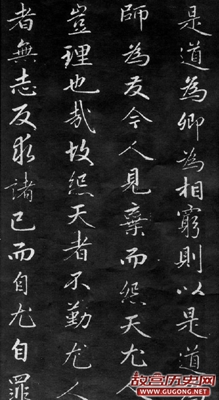 是道為卿為相窮則以是道
師為友今人見棄而怨天尤人
豈理也哉故怨天者不勤尤人
者無志反求諸己而自尤自罪
故宫历史网